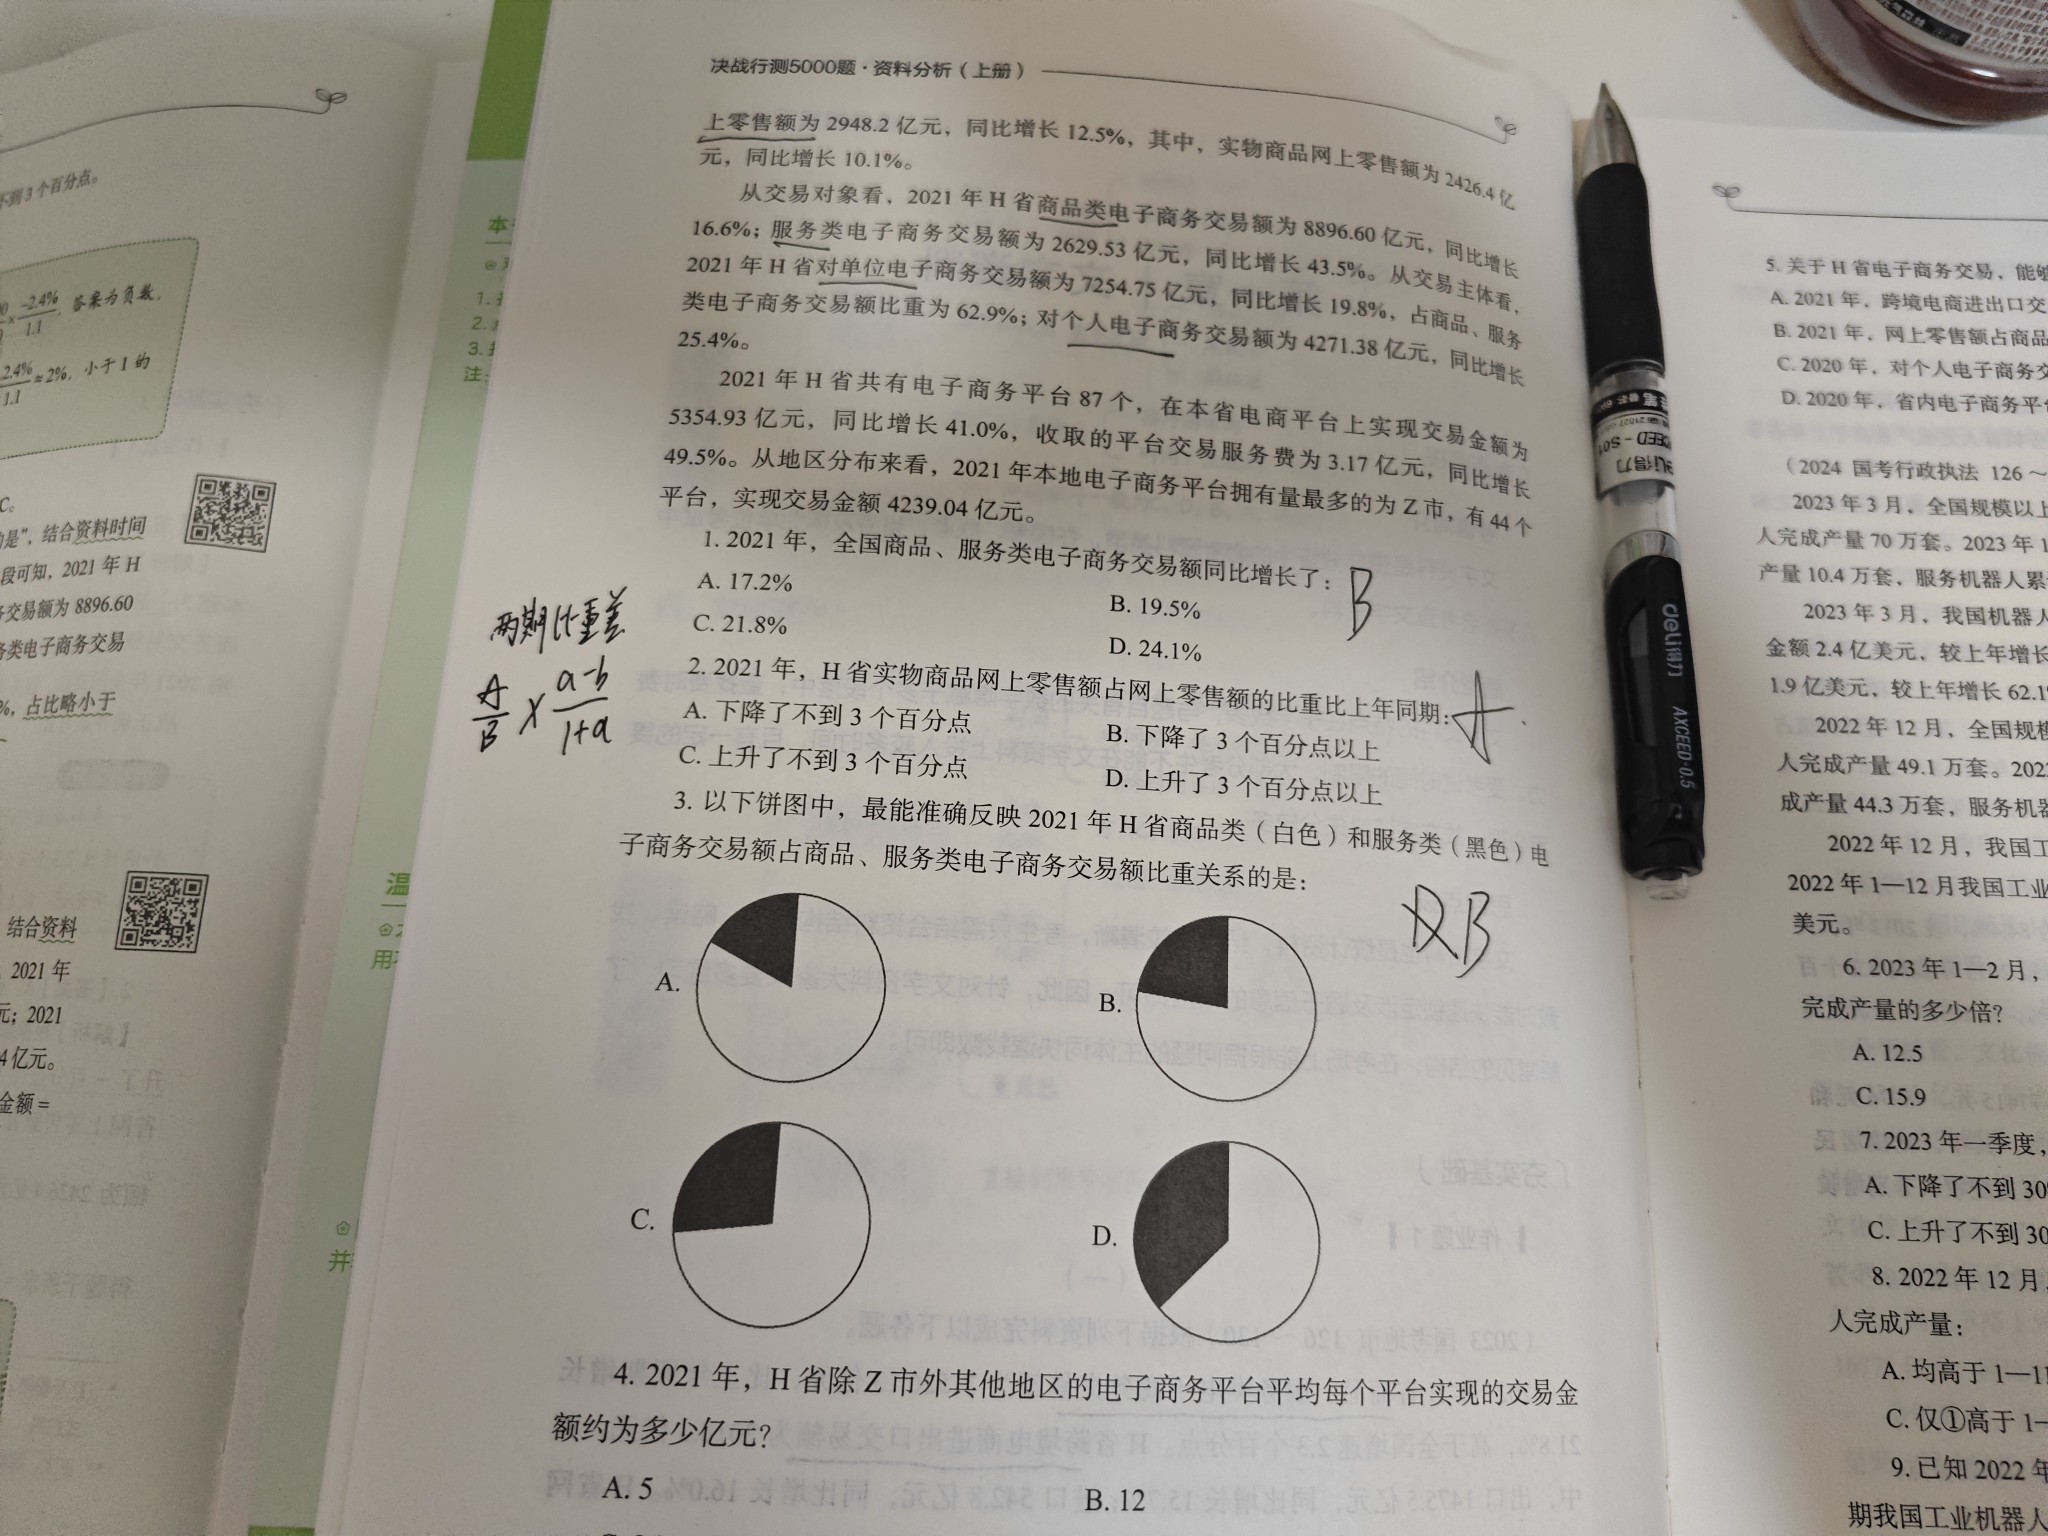 决战行测5000题·资料分析（上册）
上零售额为 2948.2 亿元，同比增长 12.5%，其中，实物商品网上零售额为 2426.4 亿
元，同比增长 10.1%。
从交易对象看，2021 年 H 省商品类电子商务交易额为 8896.60 亿元，同比增长
16.6%；服务类电子商务交易额为 2629.53 亿元，同比增长 43.5%。从交易主体看，
2021 年 H 省对单位电子商务交易额为 7254.75 亿元，同比增长 19.8%，占商品、服务
类电子商务交易额比重为 62.9%；对个人电子商务交易额为 4271.38 亿元，同比增长
25.4%。
2021 年 H 省共有电子商务平台 87 个，在本省电商平台上实现交易金额为
5354.93 亿元，同比增长 41.0%，收取的平台交易服务费为 3.17 亿元，同比增长
49.5%。从地区分布来看，2021 年本地电子商务平台拥有量最多的为 Z 市，有 44 个
平台，实现交易金额 4239.04 亿元。
1. 2021 年，全国商品、服务类电子商务交易额同比增长了： B
A. 17.2%
B. 19.5%
C. 21.8%
D. 24.1%
两期比重差
A/B × (a-b)/(1+a)
2. 2021 年，H 省实物商品网上零售额占网上零售额的比重比上年同期： A
A. 下降了不到 3 个百分点
B. 下降了 3 个百分点以上
C. 上升了不到 3 个百分点
D. 上升了 3 个百分点以上
3. 以下饼图中，最能准确反映 2021 年 H 省商品类（白色）和服务类（黑色）电
子商务交易额占商品、服务类电子商务交易额比重关系的是：
B
A.
B.
C.
D.
4. 2021 年，H 省除 Z 市外其他地区的电子商务平台平均每个平台实现的交易金
额约为多少亿元？
A. 5
B. 12
不到 3 个百分点。
-2.4%
1.1
答案为负数，
2.4%
1.1
≈2%，小于 1 的
C。
是”，结合资料时间
段可知，2021 年 H
交易额为 8896.60
类电子商务交易
%，占比略小于
结合资料
2021 年
元；2021
4 亿元。
金额＝
本
1.
2.
3.
注：
温
用
并
deli得力
AXCEED-0.5
5. 关于 H 省电子商务交易，能够
A. 2021 年，跨境电商进出口交
B. 2021 年，网上零售额占商品
C. 2020 年，对个人电子商务交
D. 2020 年，省内电子商务平台
（2024 国考行政执法 126～
2023 年 3 月，全国规模以上
人完成产量 70 万套。2023 年 1
产量 10.4 万套，服务机器人累
2023 年 3 月，我国机器人
金额 2.4 亿美元，较上年增长
1.9 亿美元，较上年增长 62.1
2022 年 12 月，全国规模
人完成产量 49.1 万套。202
成产量 44.3 万套，服务机器
2022 年 12 月，我国工
2022 年 1—12 月我国工业
美元。
6. 2023 年 1—2 月，
完成产量的多少倍？
A. 12.5
C. 15.9
7. 2023 年一季度，
A. 下降了不到 30
C. 上升了不到 30
8. 2022 年 12 月，
人完成产量：
A. 均高于 1—11
C. 仅①高于 1—
9. 已知 2022 年
期我国工业机器人